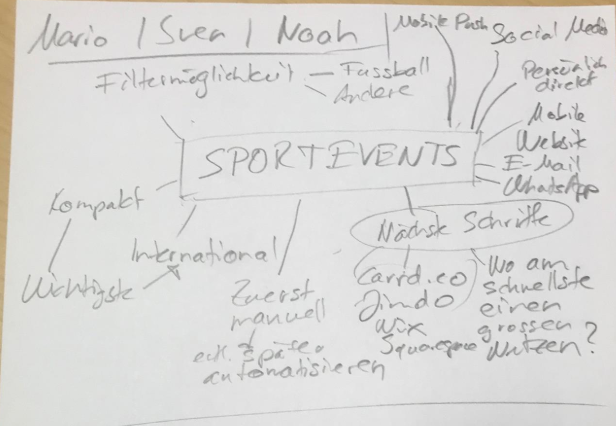 Mario / Sven / Noah
Mobile Push
Social Media
Filtermöglichkeit
Fussball
Andere
Persönlich
direkt
Mobile
Website
E-Mail
WhatsApp
SPORTEVENTS
Kompakt
International
Wichtigste
Zuerst
manuell
evt. später
automatisieren
Nächste Schritte
Carrd.co
Jimdo
Wix
Squarespace
Wo am
schnellste
einen
grossen
Nutzen?